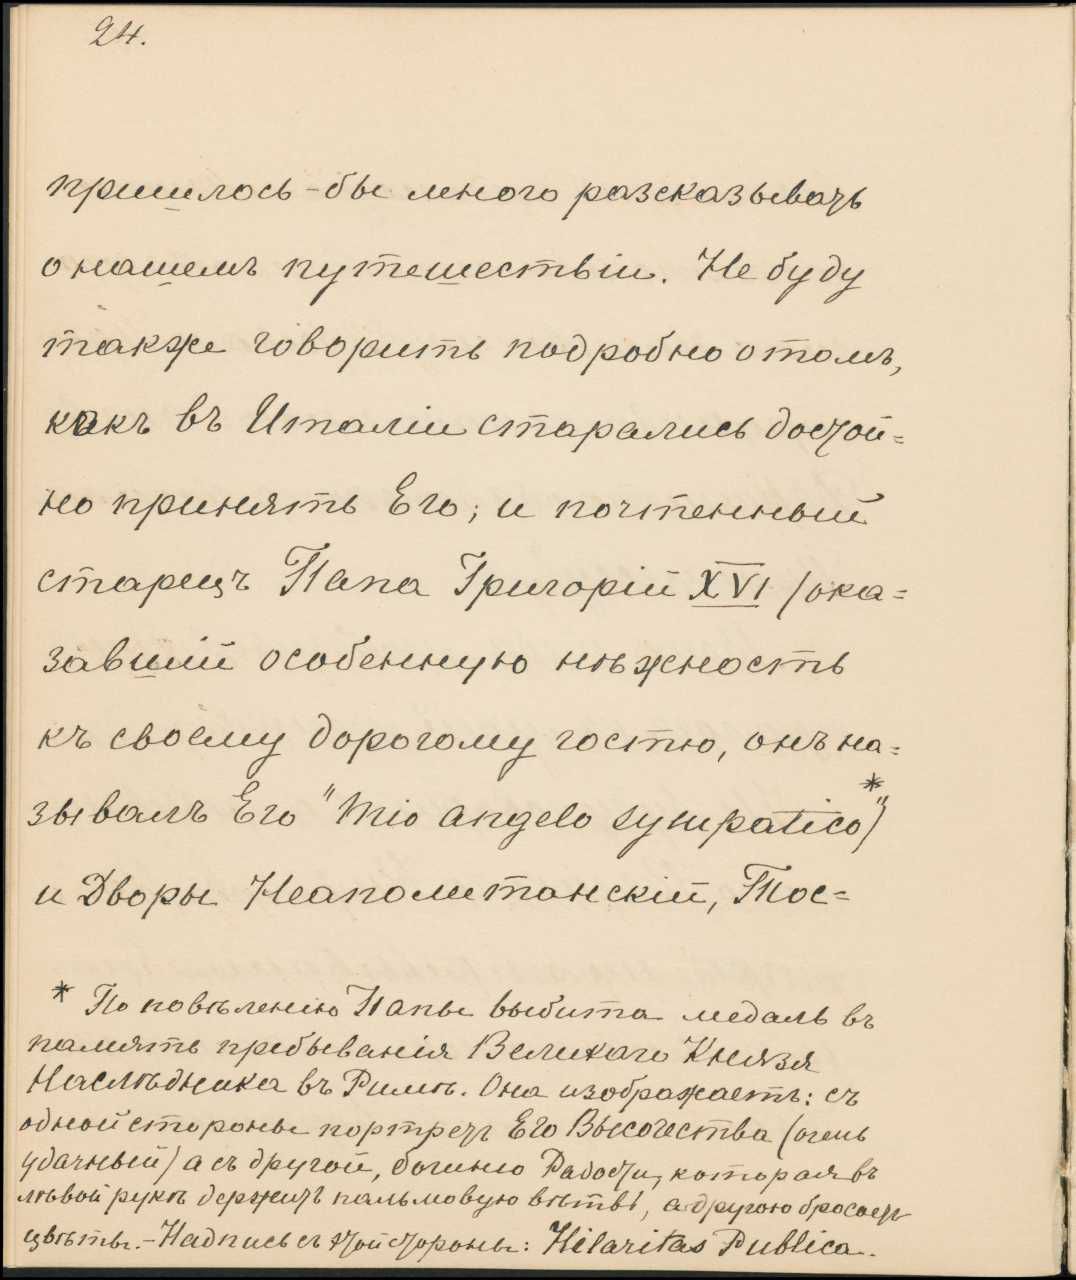 24.
пришлось-бы много разсказывать
о нашемъ путешествіи. Не буду
также говорить подробно о томъ,
какъ въ Италіи старались достой=
но принять Его; и почтенный
старецъ Папа Григорій XVI (ока=
завшій особенную нѣжность
къ своему дорогому гостю, онъ на=
зывалъ Его "mio angelo sympatico")*
и Дворы Неаполитанскій, Тос=
* По повѣленію Папы выбита медаль въ
память пребыванія Великаго Князя
Наслѣдника въ Римѣ. Она изображаетъ: съ
одной стороны портретъ Его Высочества (очень
удачный) а съ другой, богиню Радости, которая въ
лѣвой рукѣ держитъ пальмовую вѣтвь, а другою бросаетъ
цвѣты. - Надпись съ этой стороны: Hilaritas Publica.